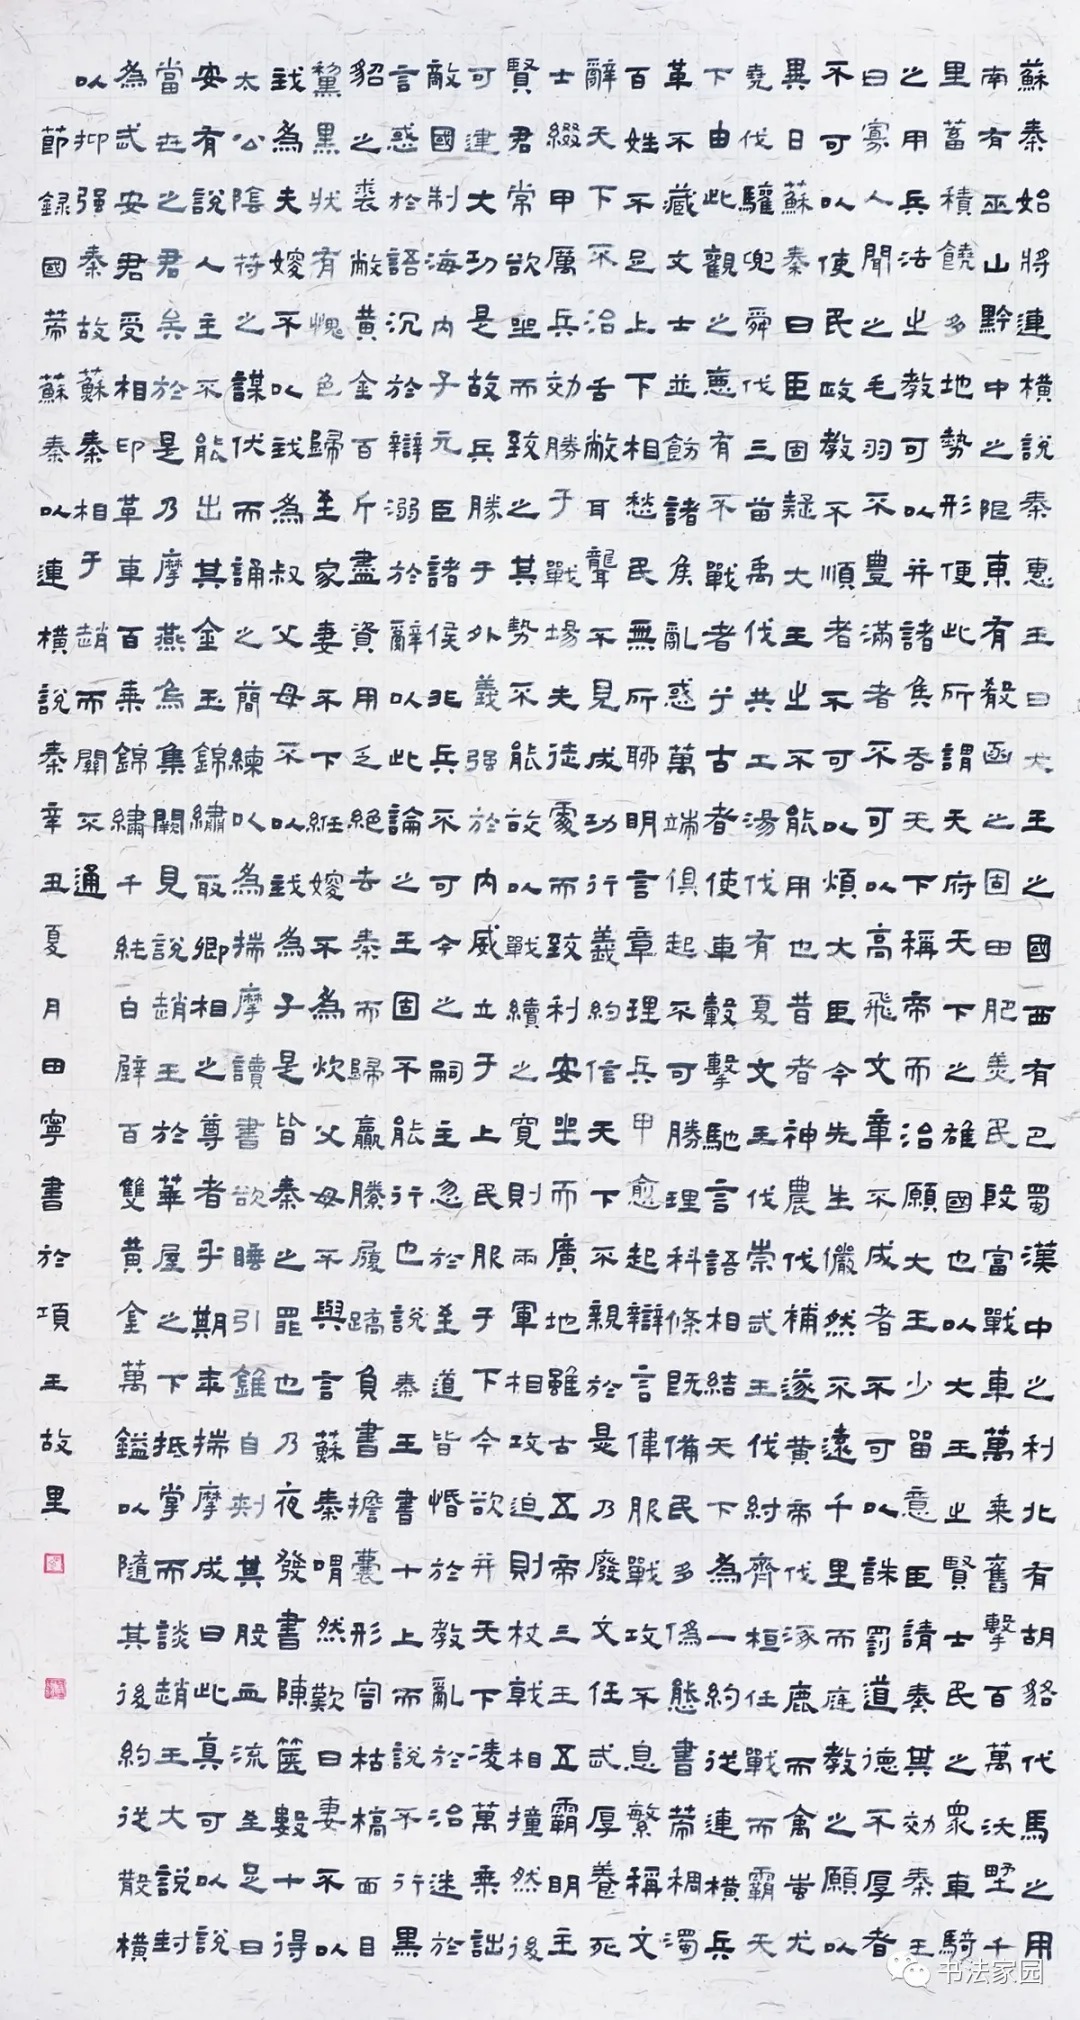 蘇秦始將連橫說秦惠王曰大王之國西有巴蜀漢中之利北有胡貉代馬之用
南有巫山黔中之阻東有殽函之固田肥美民殷富戰車萬乘舊擊百萬沃野千
里蓄積饒多地勢形便此所謂天府天下之雄國也以大王之賢士民之眾車騎
之用兵法之教可以并諸侯吞天下稱帝而治願大王少留意臣請奏其効秦王
曰寡人聞之毛羽不豐滿者不可以高飛文章不成者不可以誅罰道德不厚者
不可以使民政教不順者不可以煩大臣今先生儼然不遠千里而庭教之願以
異日蘇秦曰臣固疑大王之不能用也昔者神農伐補遂黃帝伐涿鹿而禽蚩尤
堯伐驩兜舜伐三苗禹伐共工湯伐有夏文王伐崇武王伐紂齊桓任戰而霸天
下由此觀之惡有不戰者乎古者使車轂擊馳言語相結天下為一約從連橫兵
革不藏文士並飭諸侯亂惑萬端俱起不可勝理科條既備民多偽態書策稠濁
百姓不足上下相愁民無所聊明言章理兵甲愈起辯言偉服戰攻不息繁稱文
辭天下不治舌敝耳聾不見成功行義約信天下不親於是乃廢文任武厚養死
士綴甲厲兵効勝于戰場夫徒處而致利安坐而廣地雖古五帝三王五霸明主
賢君常欲坐而致之其勢不能故以戰續之寬則兩軍相攻迫則杖戟相撞然後
可建大功是故兵勝于外義强於內威立于上民服于下今欲并天下凌萬乘詘
敵國制海內子元臣諸侯非兵不可今之嗣主忽於至道皆惛於教亂於治迷於
言惑於語沉於辯溺於辭以此論之王固不能行也說秦王書十上而說不行黑
貂之裘敝黃金百斤盡資用乏絕去秦而歸羸縢履蹻負書擔囊形容枯槁面目
黧黑狀有愧色歸至家妻不下紝嫂不為炊父母不與言蘇秦喟然歎曰妻不以
我為夫嫂不以我為叔父母不以我為子是皆秦之罪也乃夜發書陳篋數十得
太公陰符之謀伏而誦之簡練以為揣摩讀書欲睡引錐自刺其股血流至足曰
安有說人主不能出其金玉錦繡取卿相之尊者乎期年揣摩成曰此真可以說
當世之君矣於是乃摩燕烏集闕見說趙王於華屋之下抵掌而談趙王大說封
為武安君受相印革車百乘錦繡千純白璧百雙黃金萬鎰以隨其後約從散橫
以抑强秦故蘇秦相于趙而關不通
節錄國策蘇秦以連橫說秦辛丑夏月田寧書於項王故里
书法家园